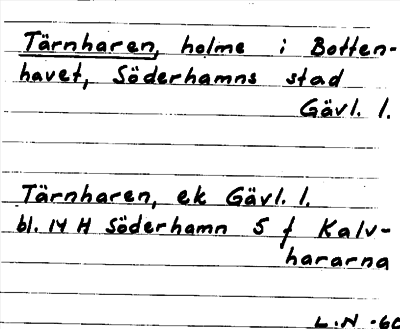 Tärnharen, holme i Botten-
havet, Söderhamns stad
Gävl. l.
Tärnharen, ek Gävl. l.
bl. 14 H Söderhamn 5 f Kalv-
hararna
L.N -60